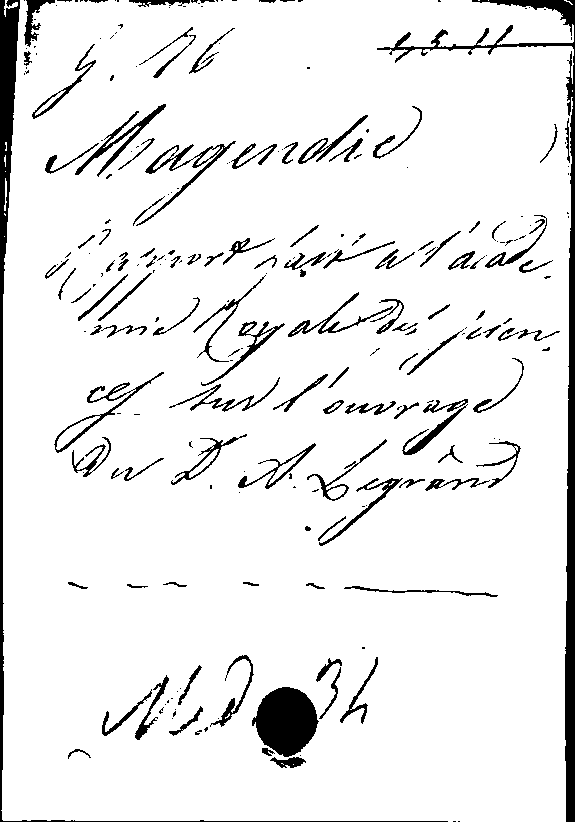 G. 76
45.11
Magendie
Rapport fait a l'acade-
mie Royale des scien-
ces sur l'ouvrage
du D. A. Legrand
Med. 34